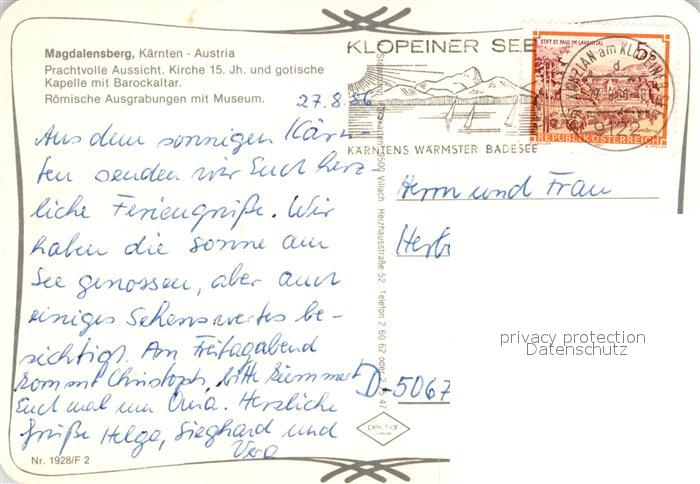 Magdalensberg, Kärnten - Austria
Prachtvolle Aussicht. Kirche 15. Jh. und gotische
Kapelle mit Barockaltar.
Römische Ausgrabungen mit Museum.
27.8.86
Aus dem sonnigen Kärn-
ten senden wir Euch herz-
liche Feriengrüße. Wir
haben die Sonne am
See genossen, aber auch
einiges Sehenswertes be-
sichtigt. Am Freitagabend
kommt Christoph, bitte kümmert
Euch mal um Oma. Herzliche
Grüße Helga, Sieghard und
Vera
Nr. 1928/F 2
9500 Villach Heizhausstraße 52 Telefon 2 60 62 oder 2 45 47
KLOPEINER SEE
KÄRNTENS WÄRMSTER BADESEE
STIFT ST. PAUL IM LAVANTTAL
5
REPUBLIK ÖSTERREICH
AM KLOPEINER
9122
Herrn und Frau
Herb
D-5067
privacy protection
Datenschutz